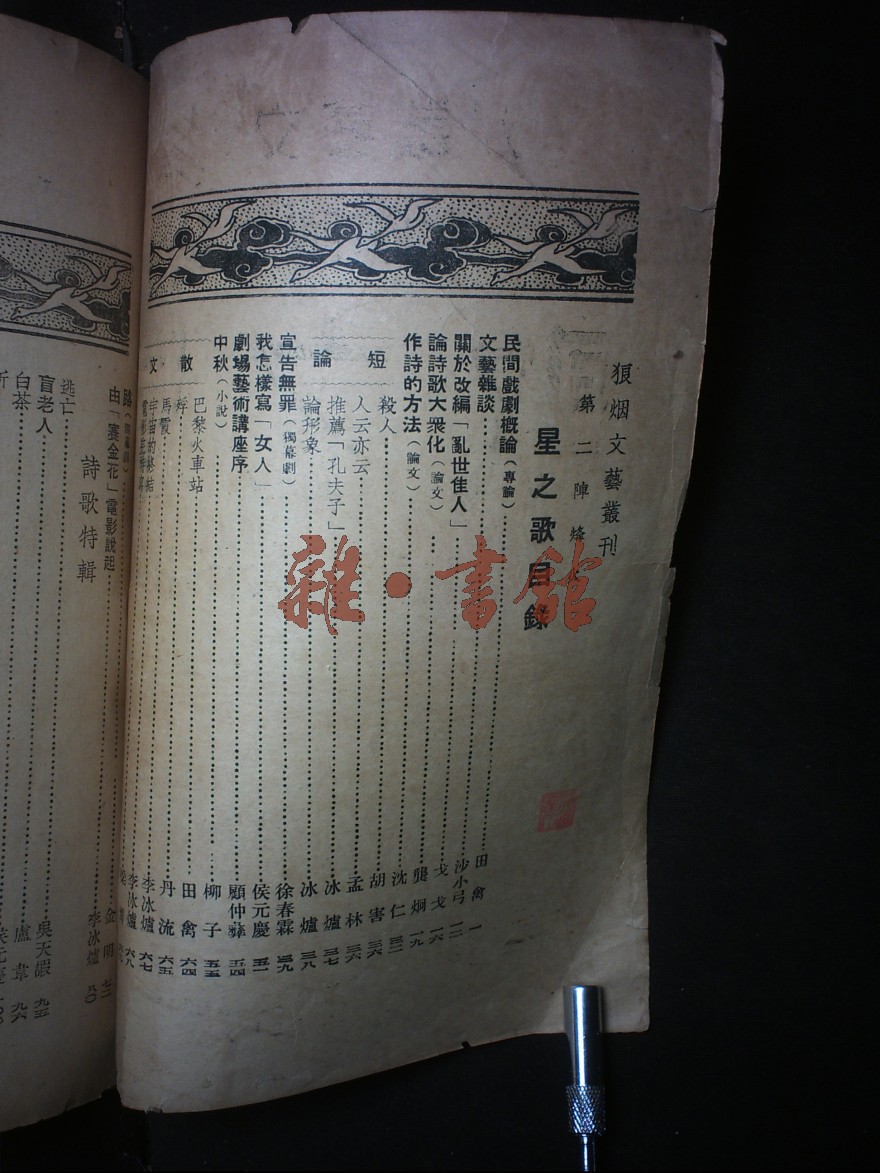 狼烟文藝叢刊
第二陣烽
星之歌目錄
民間戲劇概論(專論)………田禽 一
文藝雜談………沙小弓 一二
關於改編「亂世佳人」………戈戈 一六
論詩歌大衆化(論文)………龔炯 一九
作詩的方法(論文)………沈仁
短論
殺人………胡害 三六
人云亦云………孟林 三六
推薦「孔夫子」………冰爐 三七
論形象………冰爐 三八
宣告無罪(獨幕劇)………徐春霖 三九
我怎樣寫「女人」………侯元慶 五一
劇場藝術講座序………顧仲彝 五四
中秋(小說)………柳子 五五
散文
巴黎火車站………田禽 六四
丹流 六五
馬霞………李冰爐 六七
宇宙的終結………李冰爐 六八
金明 七二
由「賽金花」電影說起………李冰爐 八〇
詩歌特輯
逃亡………吳天嘏 九五
盲老人………盧韋 九六
白茶………侯元慶 一〇〇
雜·書館